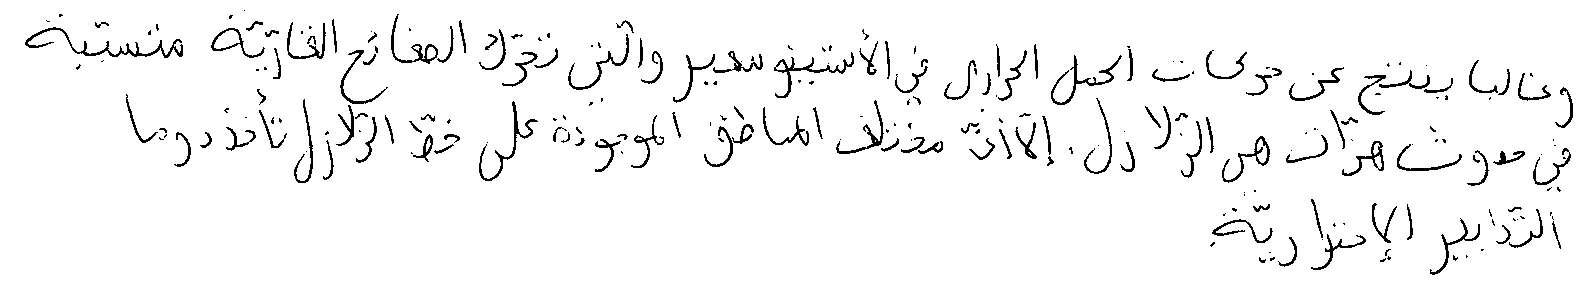 وغالبا ينتج عن حركات الحمل الحراري في الأستينوسفير والّتي تحرّك الصفائح القارّيّة متسببة
في حدوث هزّات هي الزّلازل. إلّا أنّ مختلف المناطق الموجودة على خطّ الزّلازل تأخذ دوما
التّدابير الإحترازيّة